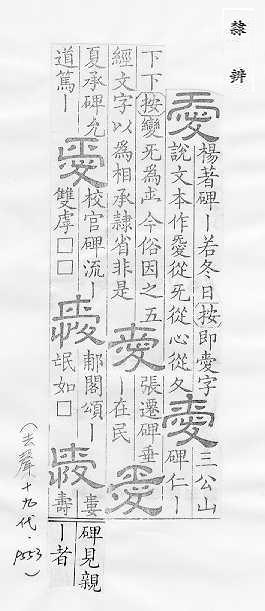 隸辨
愛楊著碑丨若冬日按即愛字
說文本作㤅從旡從心從夊
愛三公山碑仁丨
下下按變旡為㐬今俗因之五
經文字以為相承隸省非是
愛張遷碑垂丨在民
愛
夏承碑允
道篤丨
愛校官碑流丨
雙虖□□
愛郙閣頌丨
氓如□
愛婁壽
碑見親
丨者
(去聲十九代・P553)